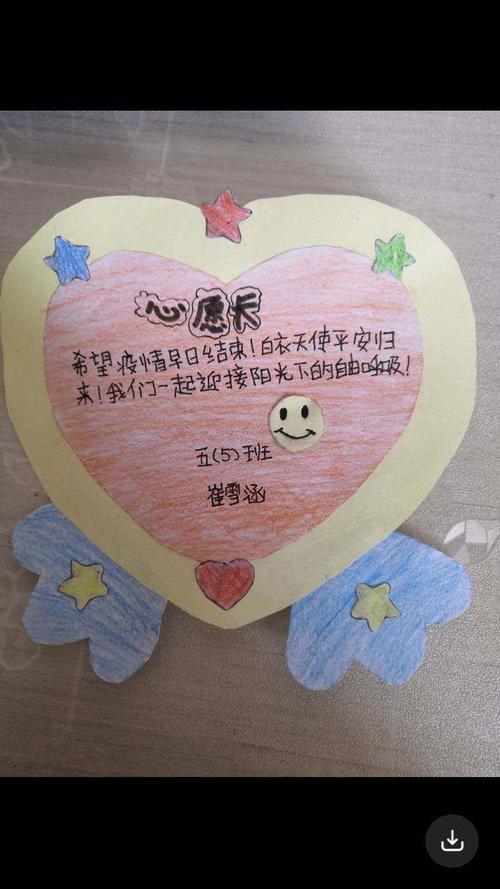 心愿长
希望疫情早日结束!白衣天使平安归
来!我们一起迎接阳光下的自由呼吸!
五(5)班
崔雪涵